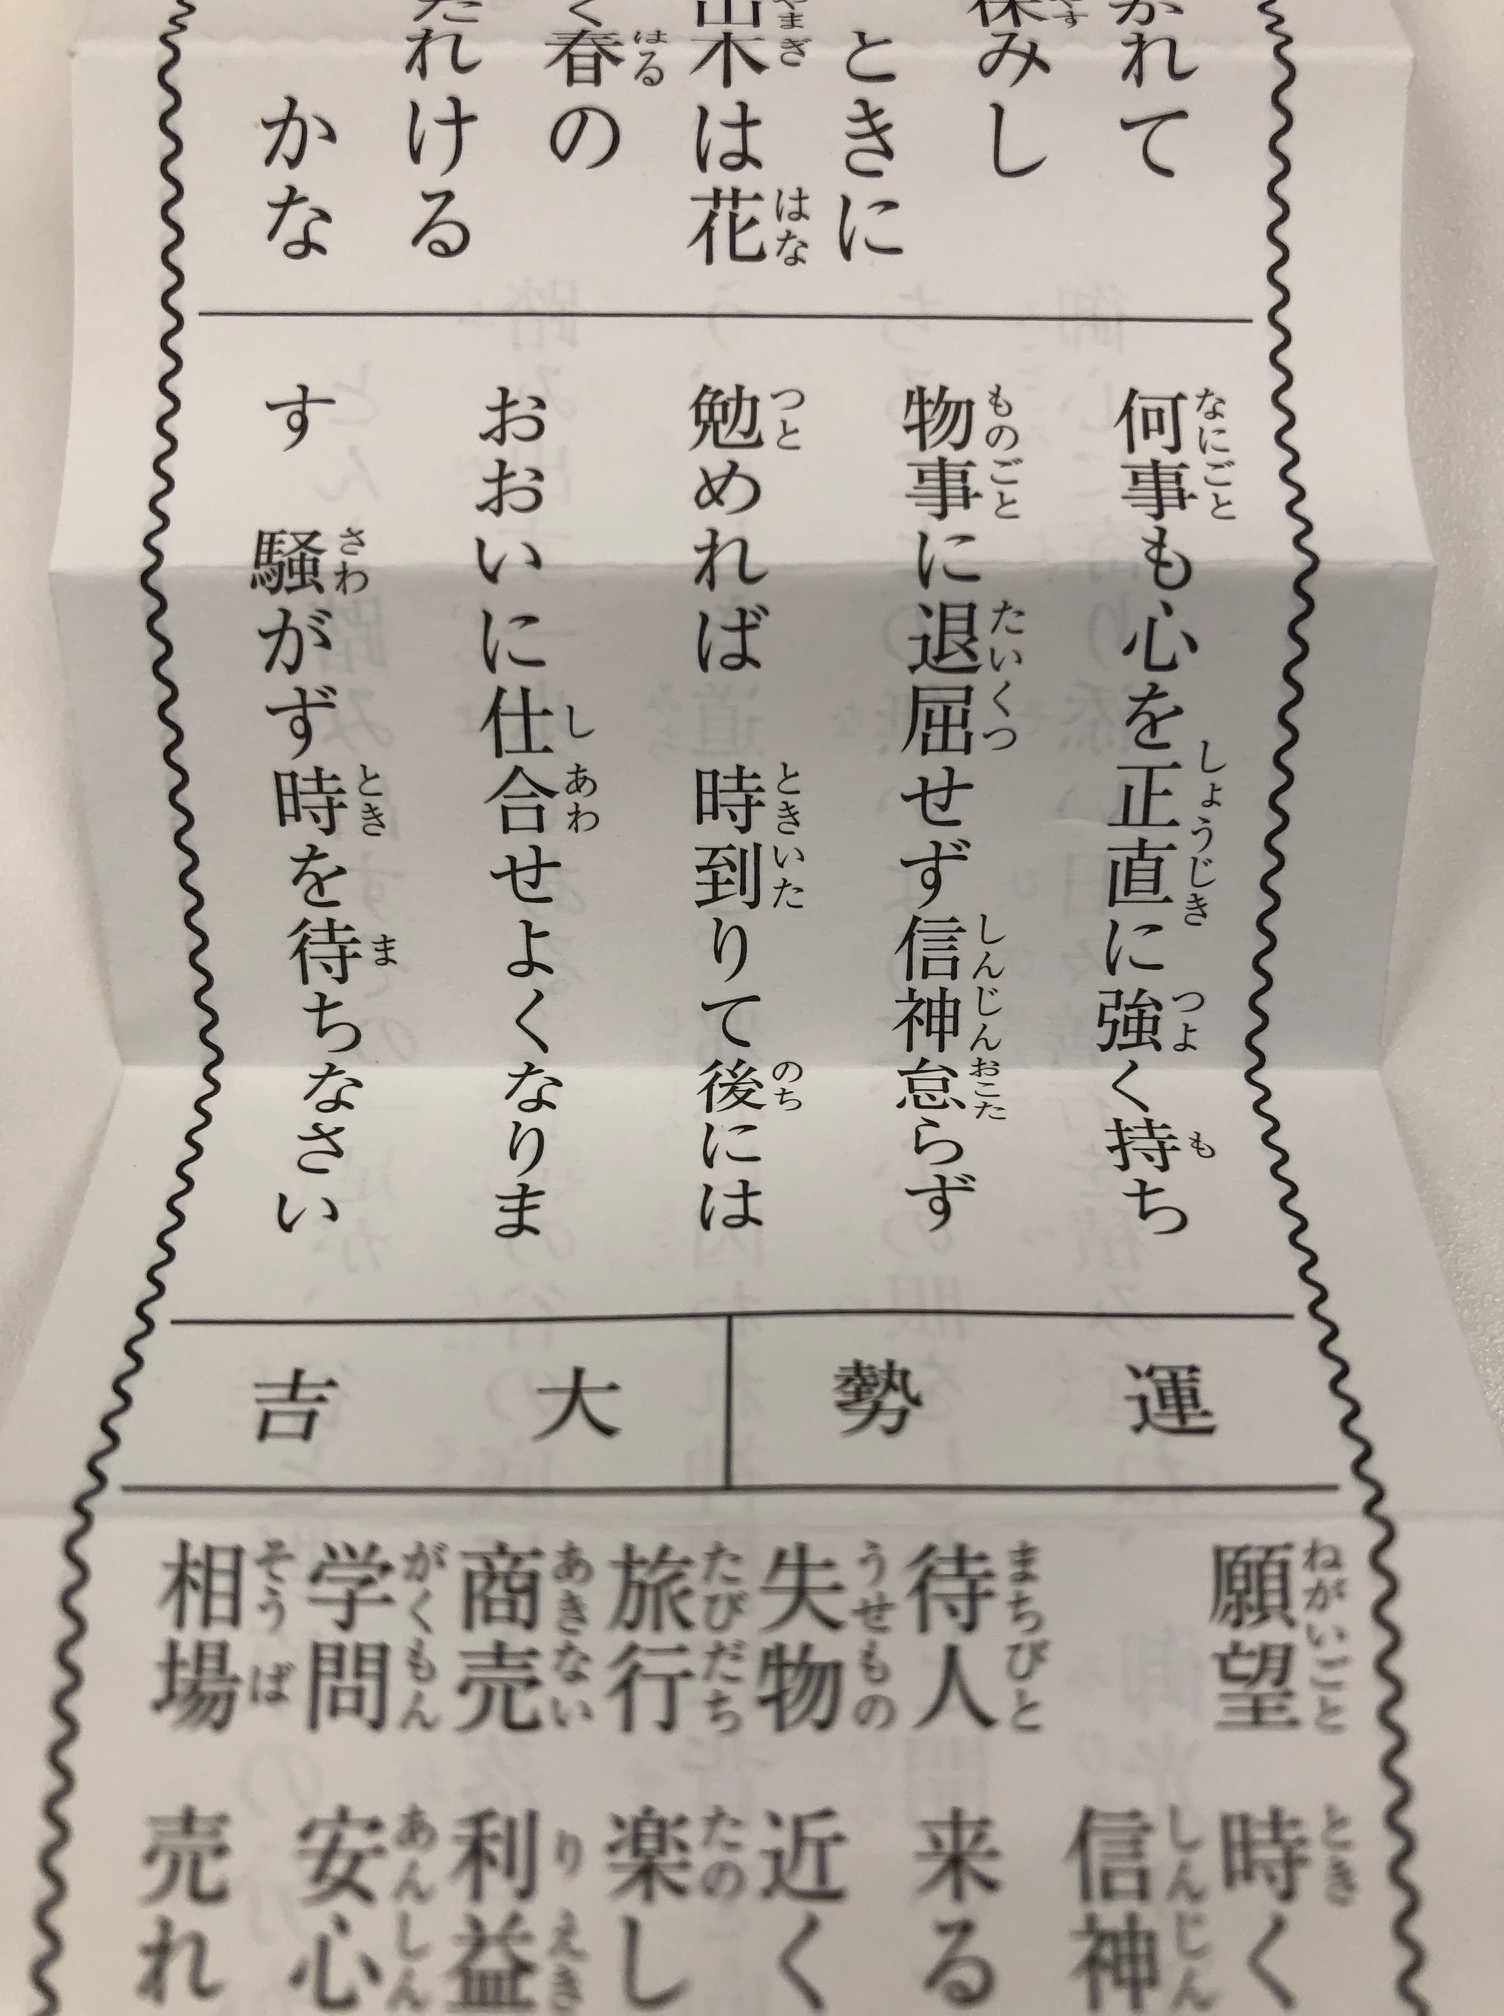 かれて
みし
ときに
木は花
春の
れける
かな
何事も心を正直に強く持ち
物事に退屈せず信神怠らず
勉めれば 時到りて後には
おおいに仕合せよくなりま
す 騒がず時を待ちなさい
運勢
大吉
願望 時く
信神
待人 来る
失物 近く
旅行 楽し
商売 利益
学問 安心
相場 売れ